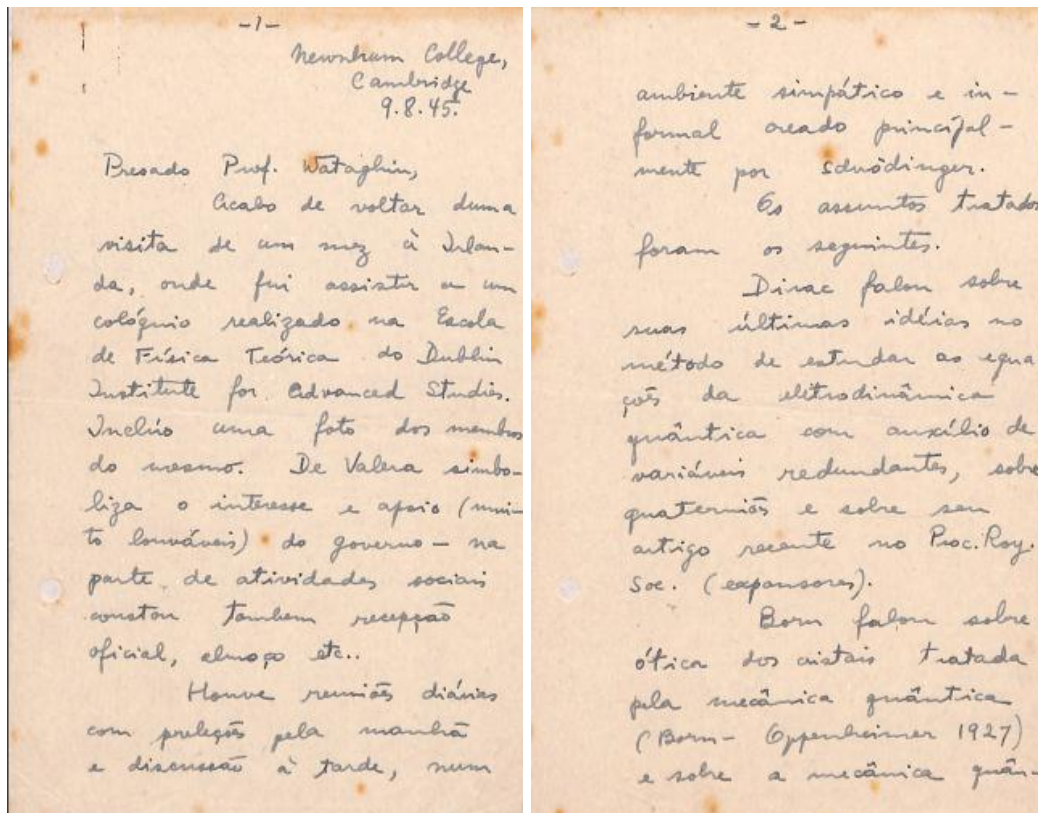 -1-
Newnham College,
Cambridge
9.8.45.
Presado Prof. Wataghin,
Acabo de voltar duma
visita de um mez à Irlan-
da, onde fui assistir a um
colóquio realizado na Escola
de Física Teórica do Dublin
Institute for Advanced Studies.
Inclúo uma foto dos membros
do mesmo. De Valera simbo-
liza o interesse e apoio (mui-
to louváveis) do governo - na
parte de atividades sociais
constou tambem recepção
oficial, almoço etc..
Houve reuniões diárias
com preleções pela manhã
e discussão à tarde, num
-2-
ambiente simpático e in-
formal creado principal-
mente por Schrödinger.
Os assuntos tratados
foram os seguintes.
Dirac falou sobre
suas últimas idéias no
método de estudar as equa
ções da eletrodinâmica
quântica com auxílio de
variáveis redundantes, sobre
quaterniões e sobre seu
artigo recente no Proc. Roy.
Soc. (expansores).
Born falou sobre
ótica dos cristais tratada
pela mecânica quântica
(Born - Oppenheimer 1927)
e sobre a mecânica quân-